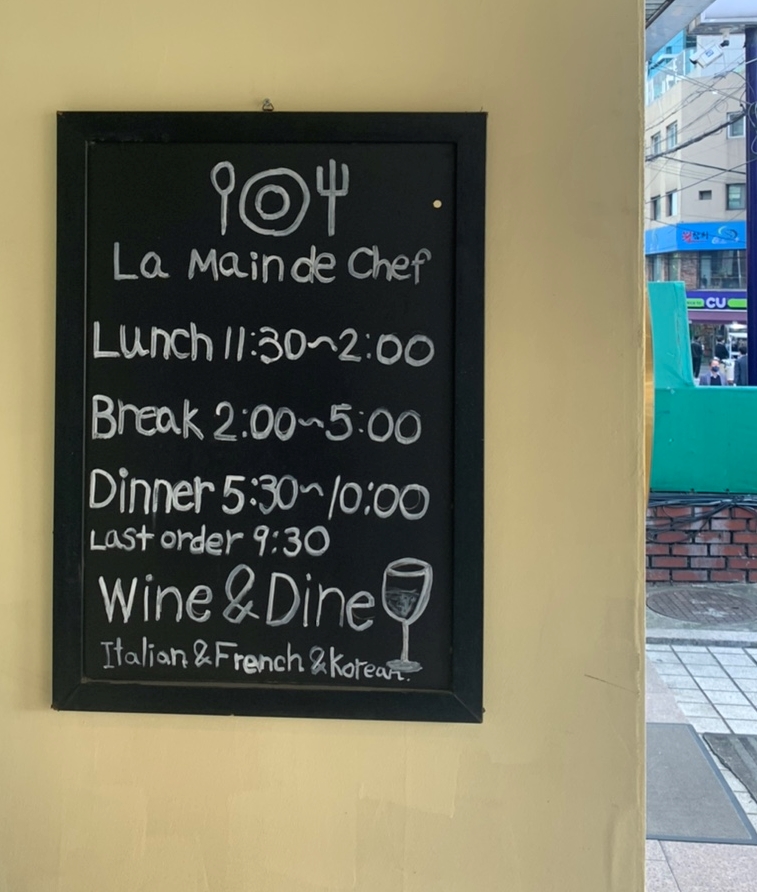 La Main de Chef
Lunch 11:30~2:00
Break 2:00~5:00
Dinner 5:30~10:00
Last order 9:30
Wine & Dine
Italian & French & Korean.
CU